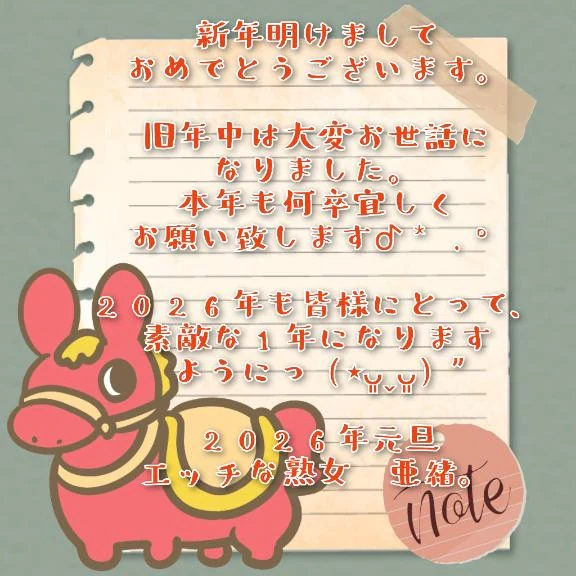 新年明けまして
おめでとうございます。
旧年中は大変お世話に
なりました。
本年も何卒宜しく
お願い致します♪*.°
2026年も皆様にとって、
素敵な1年になります
ようにっ(⋆ᴗ͈ˬᴗ͈)”
2026年元旦
エッチな熟女　亜緒。
note